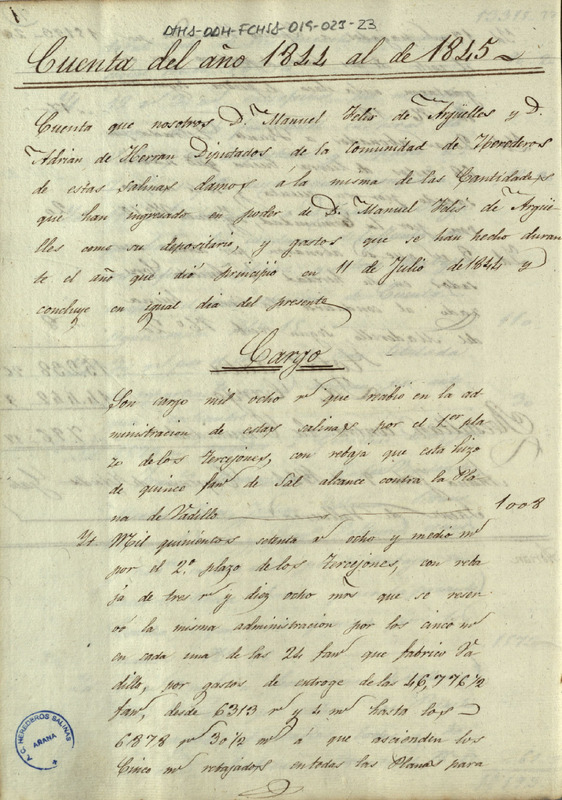 1
DIHA-DDH-FCHSA-019-023-23
Cuenta del año 1844 al de 1845
Cuenta que nosotros D.n Manuel Felis de Argüelles y D.
Adrian de Herran Diputados de la Comunidad de Herederos
de estas Salinas damos á la misma de las Cantidades
que han ingresado en poder de D.n Manuel Felis de Argüe
lles como su depositario, y gastos que se han hecho duran
te el año que dió principio en 11 de Julio de 1844 y
concluye en igual dia del presente
Cargo
Son cargo mil ocho r.s que recibió en la ad
ministracion de estas salinas por el 1.er pla
zo de los Tercejones, con rebaja que esta hizo
de quince fan.s de Sal alcance contra la Pla
na de Vadillo 1008
Yt. Mil quinientos setenta r.s ocho y medio m.s
por el 2.o plazo de los Tercejones, con reba
ja de tres r.s y diez ocho mrs que se reser
vó la misma administracion por los cinco m.s
en cada una de las 24 fan.s que fabricó Va
dillo, por gastos de entroge de las 46,776 1/2
fan.s desde 6313 r.s y 4 m.s hasta los
6878 r.s 30 1/2 m.s á que ascienden los
Cinco m.s rebajados en todas las Planas para
A.C. HEREDEROS SALINAS
AÑANA